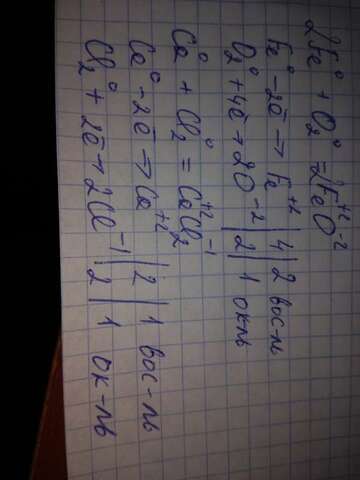 2Fe⁰ + O₂⁰ = 2Fe⁺²O⁻²
Fe⁰ - 2ē → Fe⁺² | 4 | 2 вос-ль
O₂⁰ + 4ē → 2O⁻² | 2 | 1 ок-ль
Ca⁰ + Cl₂⁰ = Ca⁺²Cl₂⁻¹
Ca⁰ - 2ē → Ca⁺² | 2 | 1 вос-ль
Cl₂⁰ + 2ē → 2Cl⁻¹ | 2 | 1 ок-ль